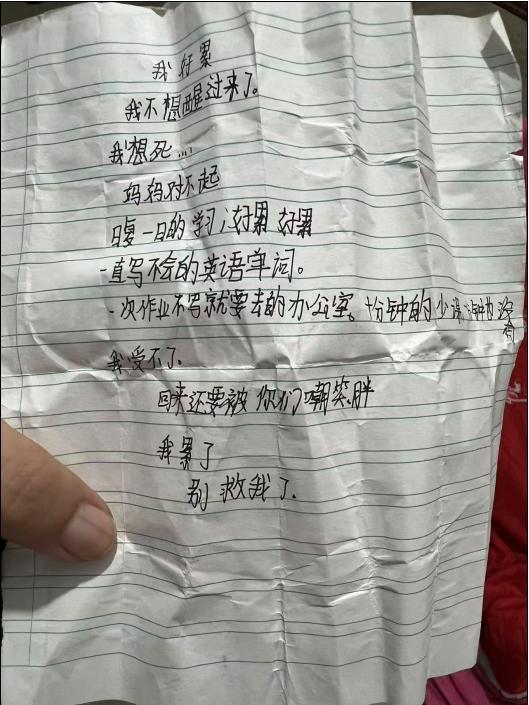 我好累
我不想醒过来了。
我想死...
妈妈对不起
日复一日的学习,好累 好累
一直写不会的英语单词。
一次作业不写就要去的办公室。十分钟的少误分钟为没有
我受不了.
回来还要被你们嘲笑胖
我累了
别救我了.